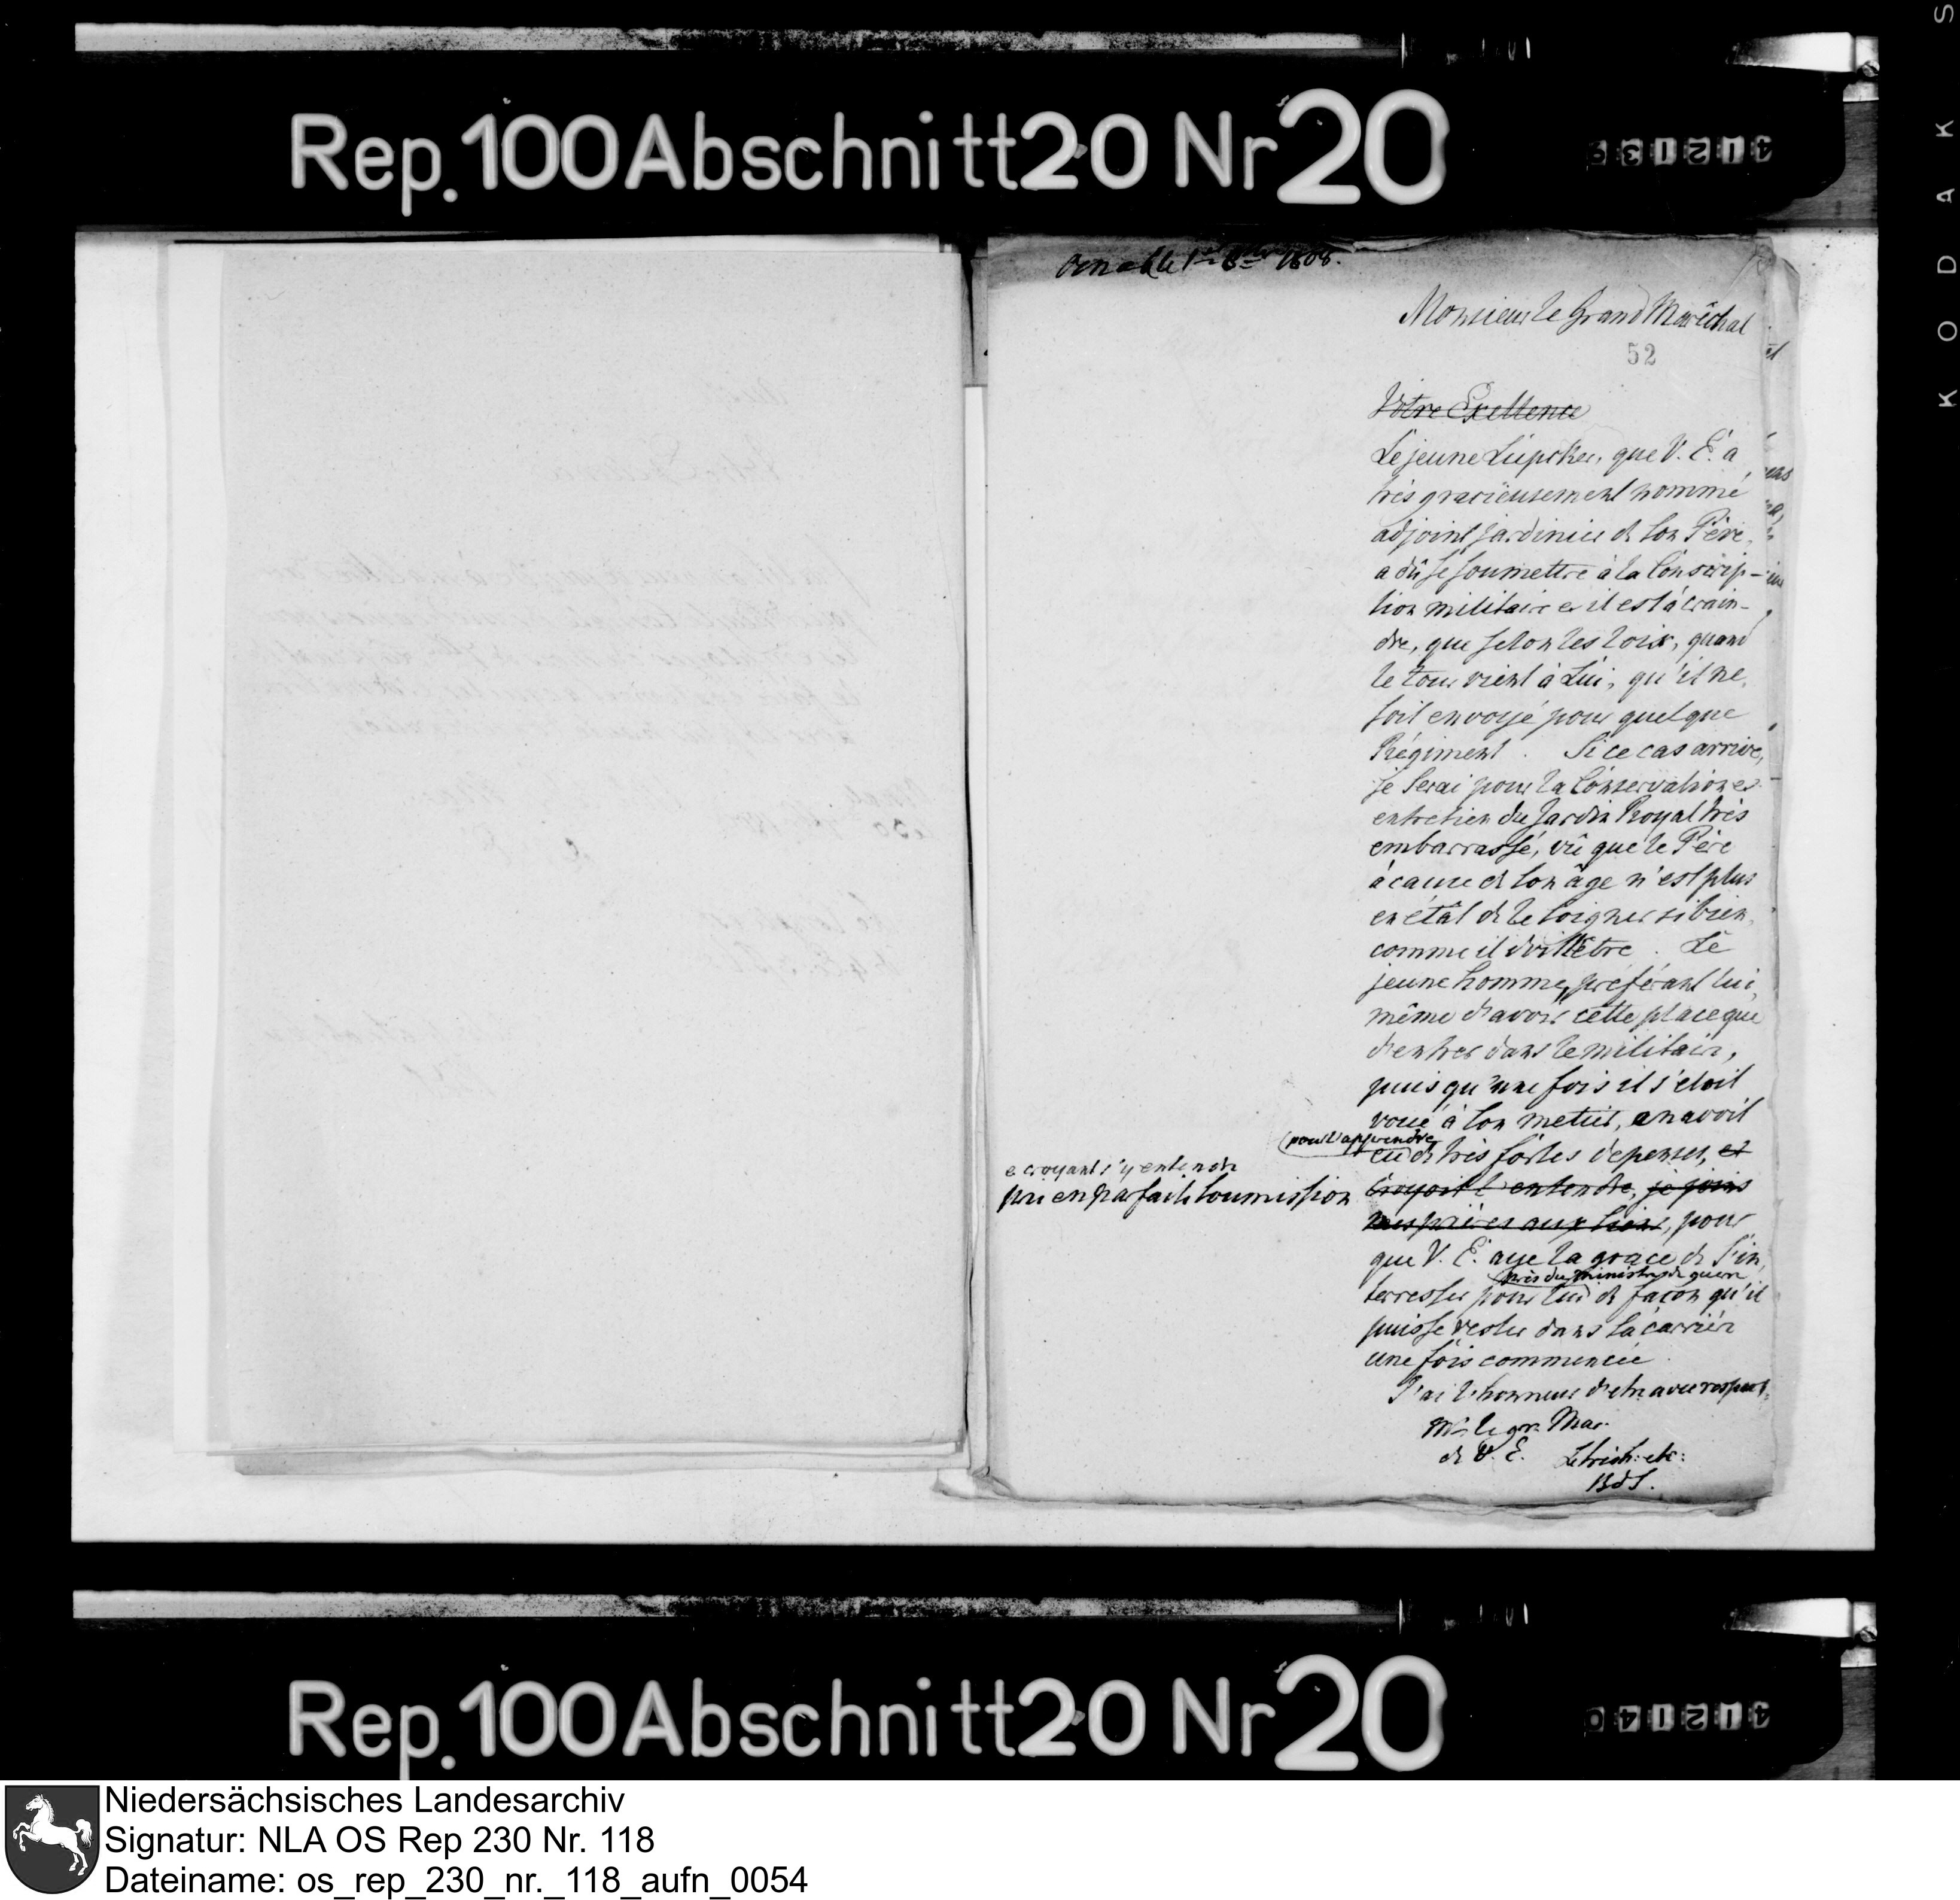 Rep. 100 Abschnitt 20 Nr 20
412139
KODAK S
Osnab. le 1r 8bre 1808.
Monsieur le Grand Maréchal
52
Vôtre Exellence
Le jeune Lüpckes, que V. E. a
très gracieusement nommé
adjoint jardinier de son Père,
a dû se soumettre à la Conscrip-
tion militaire et il est à crain-
dre, que selon les loix, quand
le tour vient à Lui, qu'il ne
soit envoyé pour quelque
Régiment. Si ce cas arrive,
je serai pour la Conservation et
entretien du Jardin Royal très
embarrassé, vû que le Père
à cause de son âge n'est plus
en étât de le soigner si bien
comme il doit l'être. Le
jeune homme, préférant lui
même d'avoir cette place que
d'entrer dans le militaire,
puis qu'une fois il s'etoit
voué à son metier, en avoit
(pour l'apprendre
eu de très fortes depenses, et
e croyant s'y entendre
pri en parfaite soumission
croyoit l'entendre, je joins
mes prières aux siens, pour
que V. E. aye la grace de s'in
près du Ministre de guerre
terresser pour lui de facon qu'il
puisse rester dans la carrière
une fois commencée.
J'ai l'honneur d'etre avec respect
Mr. le gr. Mar.
de V. E. Le trèsh: etc:
BdS.
Rep. 100 Abschnitt 20 Nr 20
412140
Niedersächsisches Landesarchiv
Signatur: NLA OS Rep 230 Nr. 118
Dateiname: os_rep_230_nr._118_aufn_0054